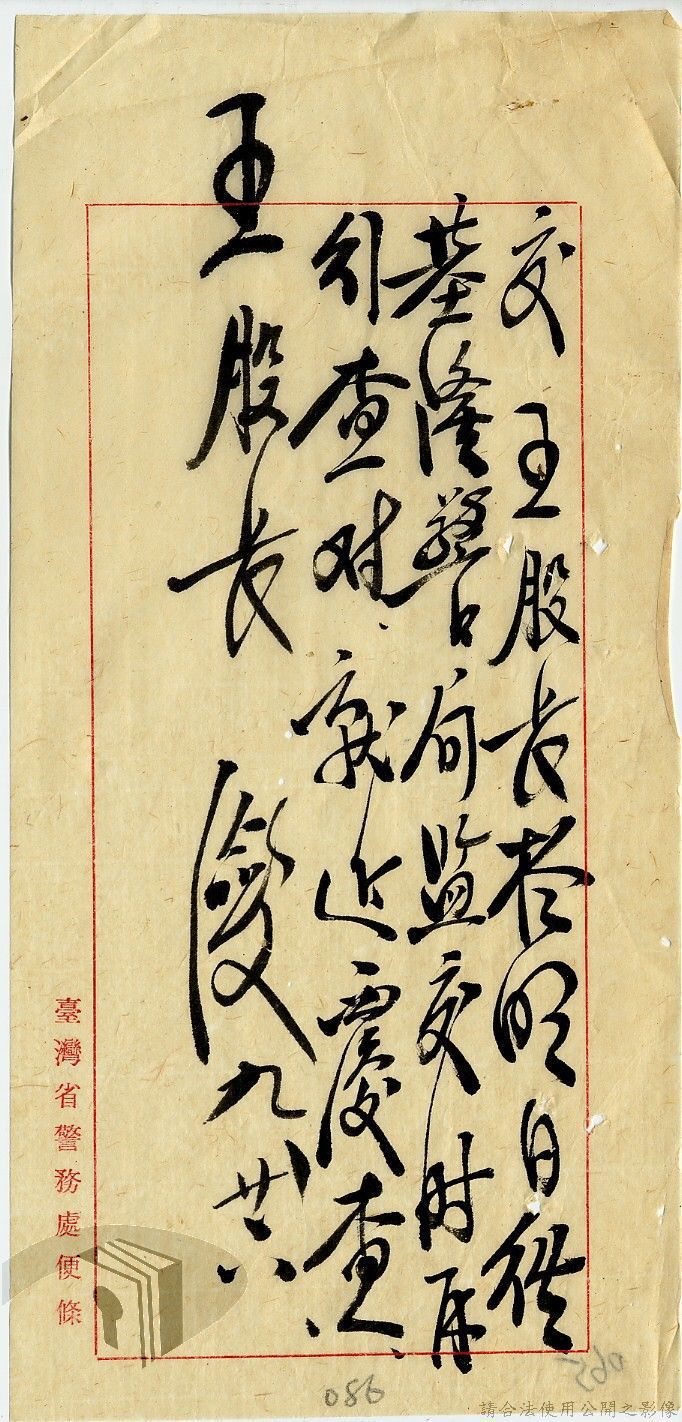 交 王股長於明日往
基隆警局監交时再
行查对、就近覆查、
王股長
九廿六
臺灣省警務處便條
086
065
請合法使用公開之影像